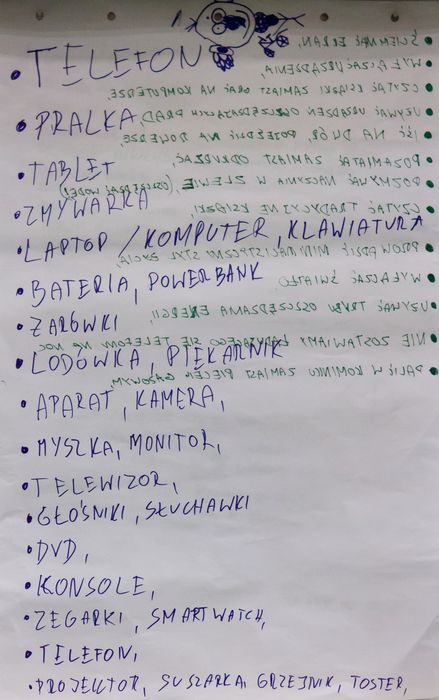 • TELEFON
• PRALKA
• TABLET
• ZMYWARKA
• LAPTOP / KOMPUTER, KLAWIATURA
• BATERIA, POWERBANK
• ŻARÓWKI
• LODÓWKA, PIEKARNIK
• APARAT, KAMERA,
• MYSZKA, MONITOR,
• TELEWIZOR,
• GŁOŚNIKI, SŁUCHAWKI
• DVD,
• KONSOLE,
• ZEGARKI, SMARTWATCH,
• TELEFON,
• PROJEKTOR, SUSZARKA, GRZEJNIK, TOSTER,
• ŚCIEMNIAĆ EKRAN,
• WYŁĄCZAĆ URZĄDZENIA,
CZYTAĆ KSIĄŻKI ZAMIAST GRAĆ NA KOMPUTERZE
• UŻYWAĆ URZĄDZEŃ OSZCZĘDZAJĄCYCH PRĄD,
• IŚĆ NA DWÓR, POJEŹDZIĆ NA ROWERZE
• POZAMIATAĆ ZAMIAST ODKURZAĆ
• POZMYWAĆ NACZYNIA W ZLEWIE (OSZCZĘDZAĆ WODĘ!)
• CZYTAĆ TRADYCYJNE KSIĄŻKI,
• PROWADZIĆ MINIMALISTYCZNY STYL ŻYCIA,
• WYŁĄCZAĆ ŚWIATŁO
• UŻYWAĆ TRYBU OSZCZĘDZANIA ENERGII,
• NIE ZOSTAWIAMY ŁADUJĄCEGO SIĘ TELEFONU NA NOC
• PALIĆ W KOMINKU ZAMIAST PIECEM GAZOWYM,